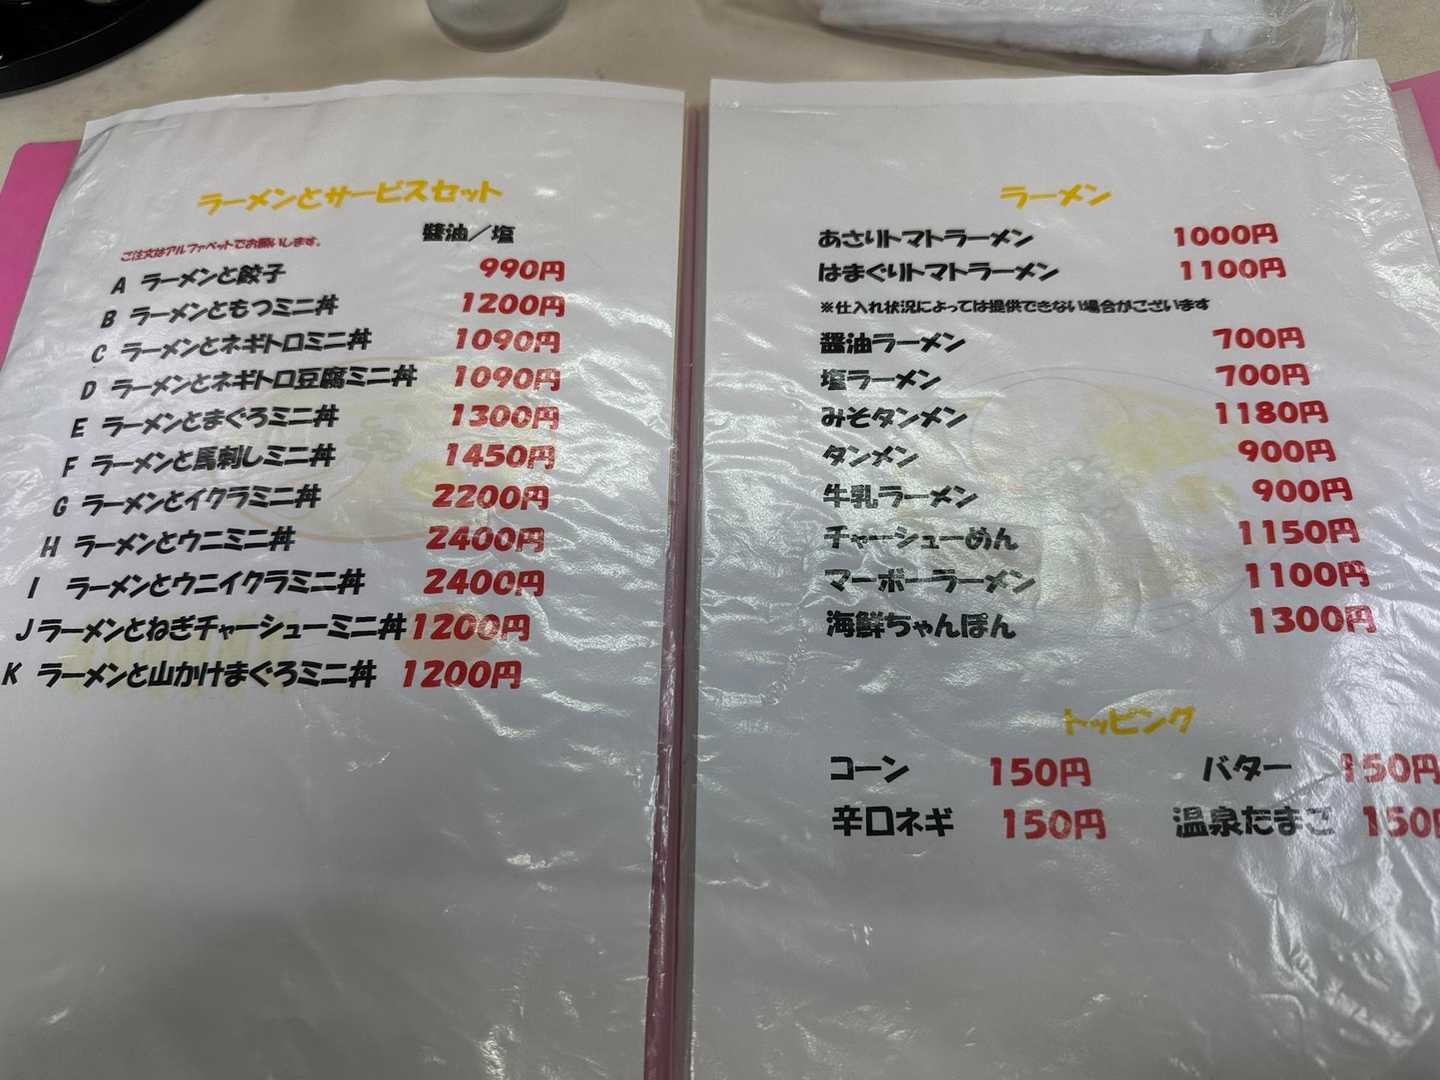 ラーメンとサービスセット
ご注文はアルファベットでお願いします。
醬油／塩
A ラーメンと餃子 990円
B ラーメンともつミニ丼 1200円
C ラーメンとネギトロミニ丼 1090円
D ラーメンとネギトロ豆腐ミニ丼 1090円
E ラーメンとまぐろミニ丼 1300円
F ラーメンと馬刺しミニ丼 1450円
G ラーメンとイクラミニ丼 2200円
H ラーメンとウニミニ丼 2400円
I ラーメンとウニイクラミニ丼 2400円
J ラーメンとねぎチャーシューミニ丼 1200円
K ラーメンと山かけまぐろミニ丼 1200円
ラーメン
あさりトマトラーメン 1000円
はまぐりトマトラーメン 1100円
※仕入れ状況によっては提供できない場合がございます
醤油ラーメン 700円
塩ラーメン 700円
みそタンメン 1180円
タンメン 900円
牛乳ラーメン 900円
チャーシューめん 1150円
マーボーラーメン 1100円
海鮮ちゃんぽん 1300円
トッピング
コーン 150円 バター 150円
辛口ネギ 150円 温泉たまご 150円